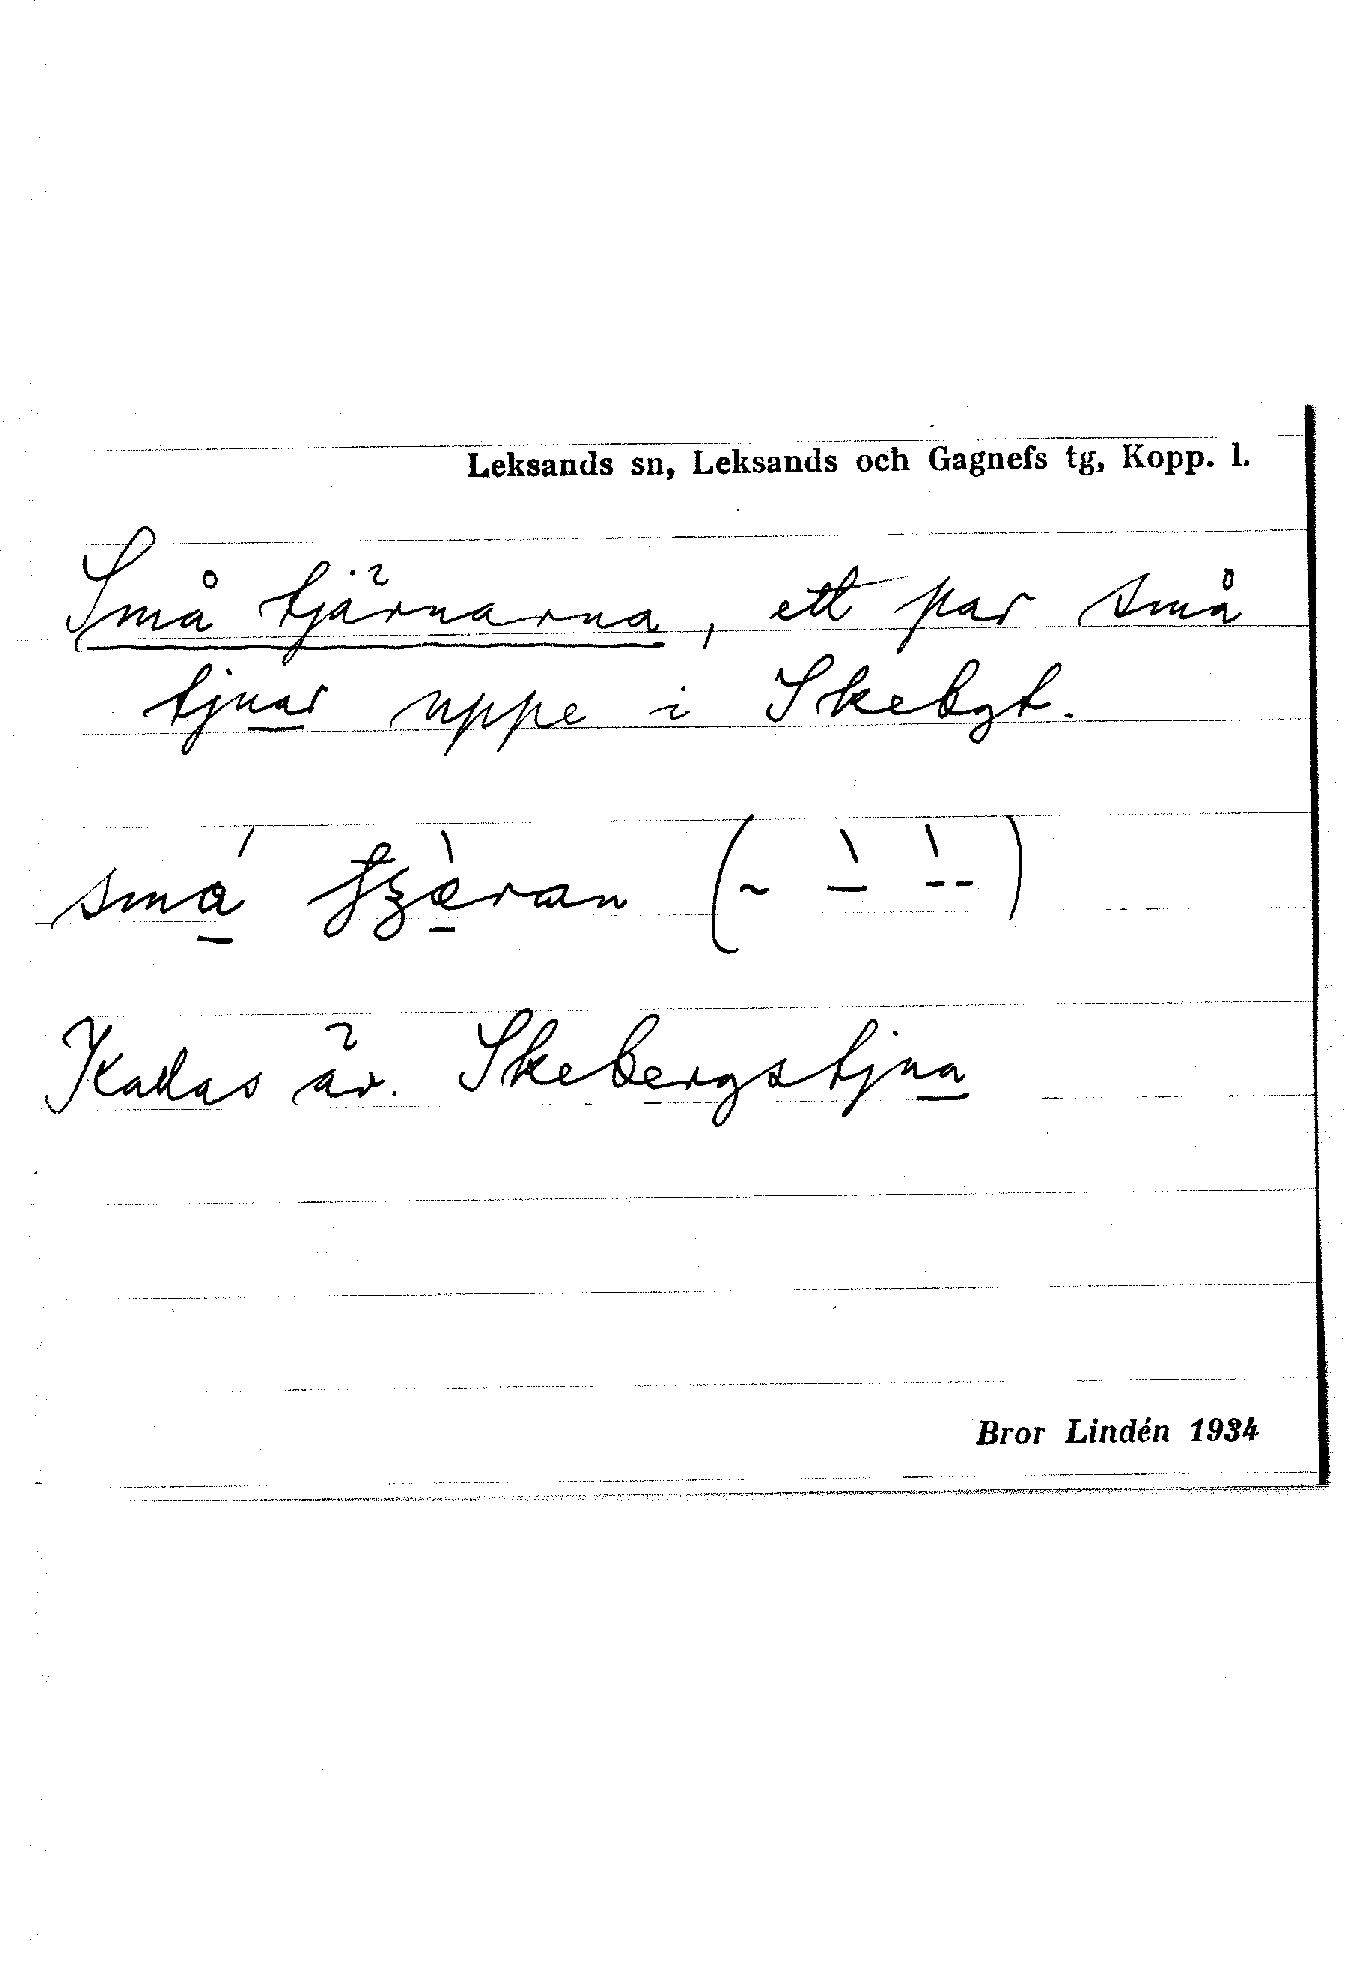 Leksands sn, Leksands och Gagnefs tg, Kopp. l.
Små tjärnarna, ett par små
tjnar uppe i Skebgt.
små
Kallas äv. Skebergstjna
Bror Lindén 1934